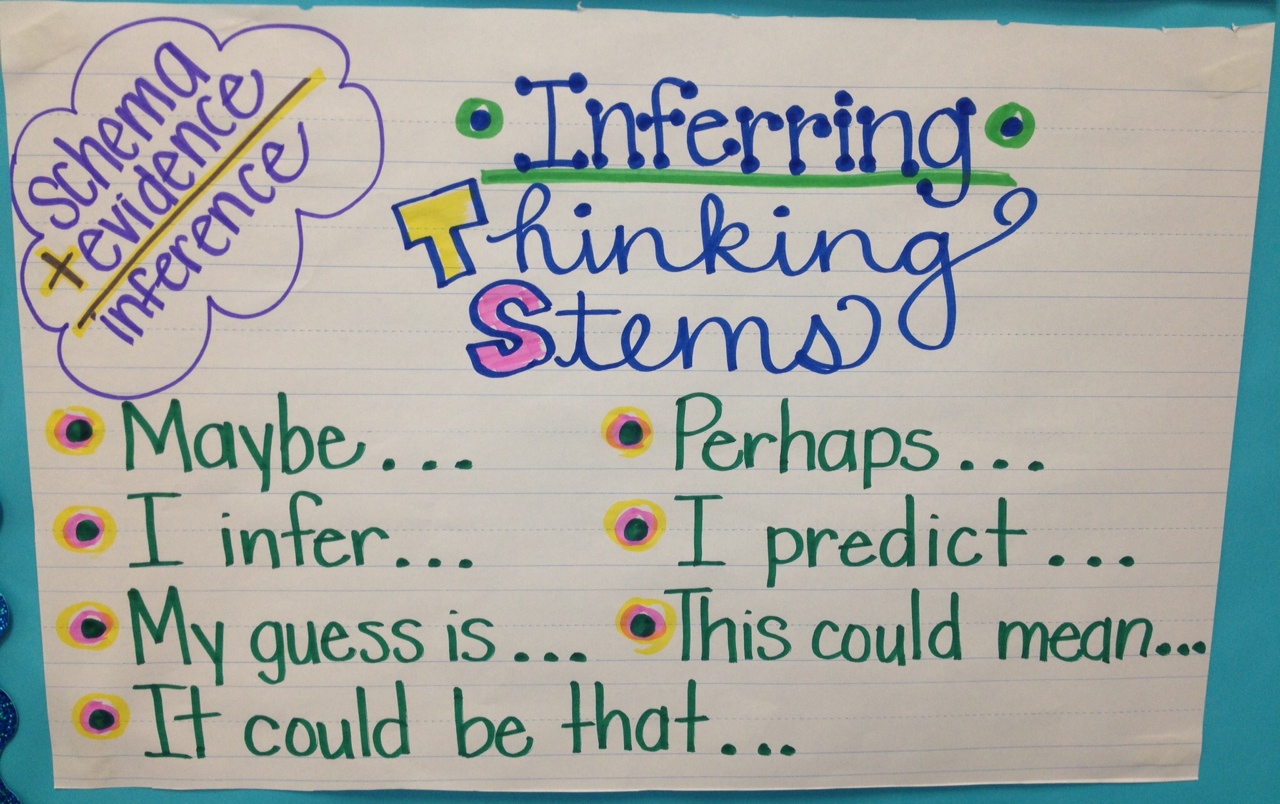 schema
+ evidence
inference
Inferring
Thinking
Stems
Maybe...
Perhaps...
I infer...
I predict...
My guess is...
This could mean...
It could be that...